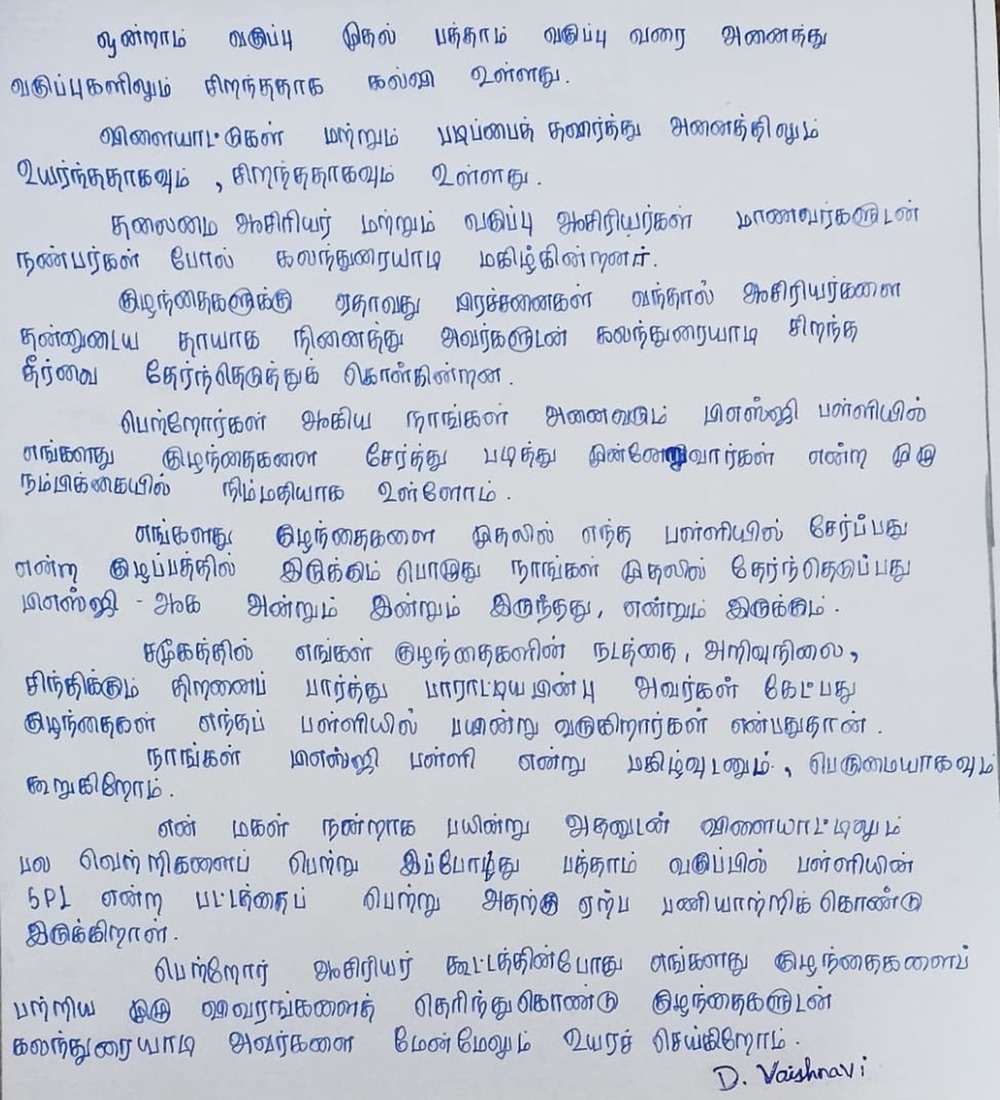 ஒன்றாம் வகுப்பு முதல் பத்தாம் வகுப்பு வரை அனைத்து
வகுப்புகளிலும் சிறந்ததாக கல்வி உள்ளது.
விளையாட்டுகள் மற்றும் படிப்பைத் தவிர்த்து அனைத்திலும்
உயர்ந்ததாகவும் , சிறந்ததாகவும் உள்ளது.
தலைமை ஆசிரியர் மற்றும் வகுப்பு ஆசிரியர்கள் மாணவர்களுடன்
நண்பர்கள் போல் கலந்துரையாடி மகிழ்கின்றனர்.
குழந்தைகளுக்கு ஏதாவது பிரச்சனைகள் வந்தால் ஆசிரியர்களை
தன்னுடைய தாயாக நினைத்து அவர்களுடன் கலந்துரையாடி சிறந்த
தீர்வை தேர்ந்தெடுத்துக் கொள்கின்றன.
பெற்றோர்கள் ஆகிய நாங்கள் அனைவரும் பிஎஸ்ஜி பள்ளியில்
எங்களது குழந்தைகளை சேர்த்து படித்து முன்னேறுவார்கள் என்ற முழு
நம்பிக்கையில் நிம்மதியாக உள்ளோம்.
எங்களது குழந்தைகளை முதலில் எந்த பள்ளியில் சேர்ப்பது
என்ற குழப்பத்தில் இருக்கும் பொழுது நாங்கள் முதலில் தேர்ந்தெடுப்பது
பிஎஸ்ஜி - ஆக அன்றும் இன்றும் இருந்தது, என்றும் இருக்கும்.
சமூகத்தில் எங்கள் குழந்தைகளின் நடத்தை, அறிவுநிலை,
சிந்திக்கும் திறனைப் பார்த்து பாராட்டியபின்பு அவர்கள் கேட்பது
குழந்தைகள் எந்தப் பள்ளியில் பயின்று வருகிறார்கள் என்பதுதான்.
நாங்கள் பிஎஸ்ஜி பள்ளி என்று மகிழ்வுடனும், பெருமையாகவும்
கூறுகிறோம்.
என் மகள் நன்றாக பயின்று அதனுடன் விளையாட்டிலும்
பல வெற்றிகளைப் பெற்று இப்போழ்து பத்தாம் வகுப்பில் பள்ளியின்
SPL என்ற பட்டத்தைப் பெற்று அதற்கு ஏற்ப பணியாற்றிக் கொண்டு
இருக்கிறாள்.
பெற்றோர் ஆசிரியர் கூட்டத்தின்போது எங்களது குழந்தைகளைப்
பற்றிய முழு விவரங்களைத் தெரிந்துகொண்டு குழந்தைகளுடன்
கலந்துரையாடி அவர்களை மேன்மேலும் உயரச் செய்கிறோம்.
D. Vaishnavi